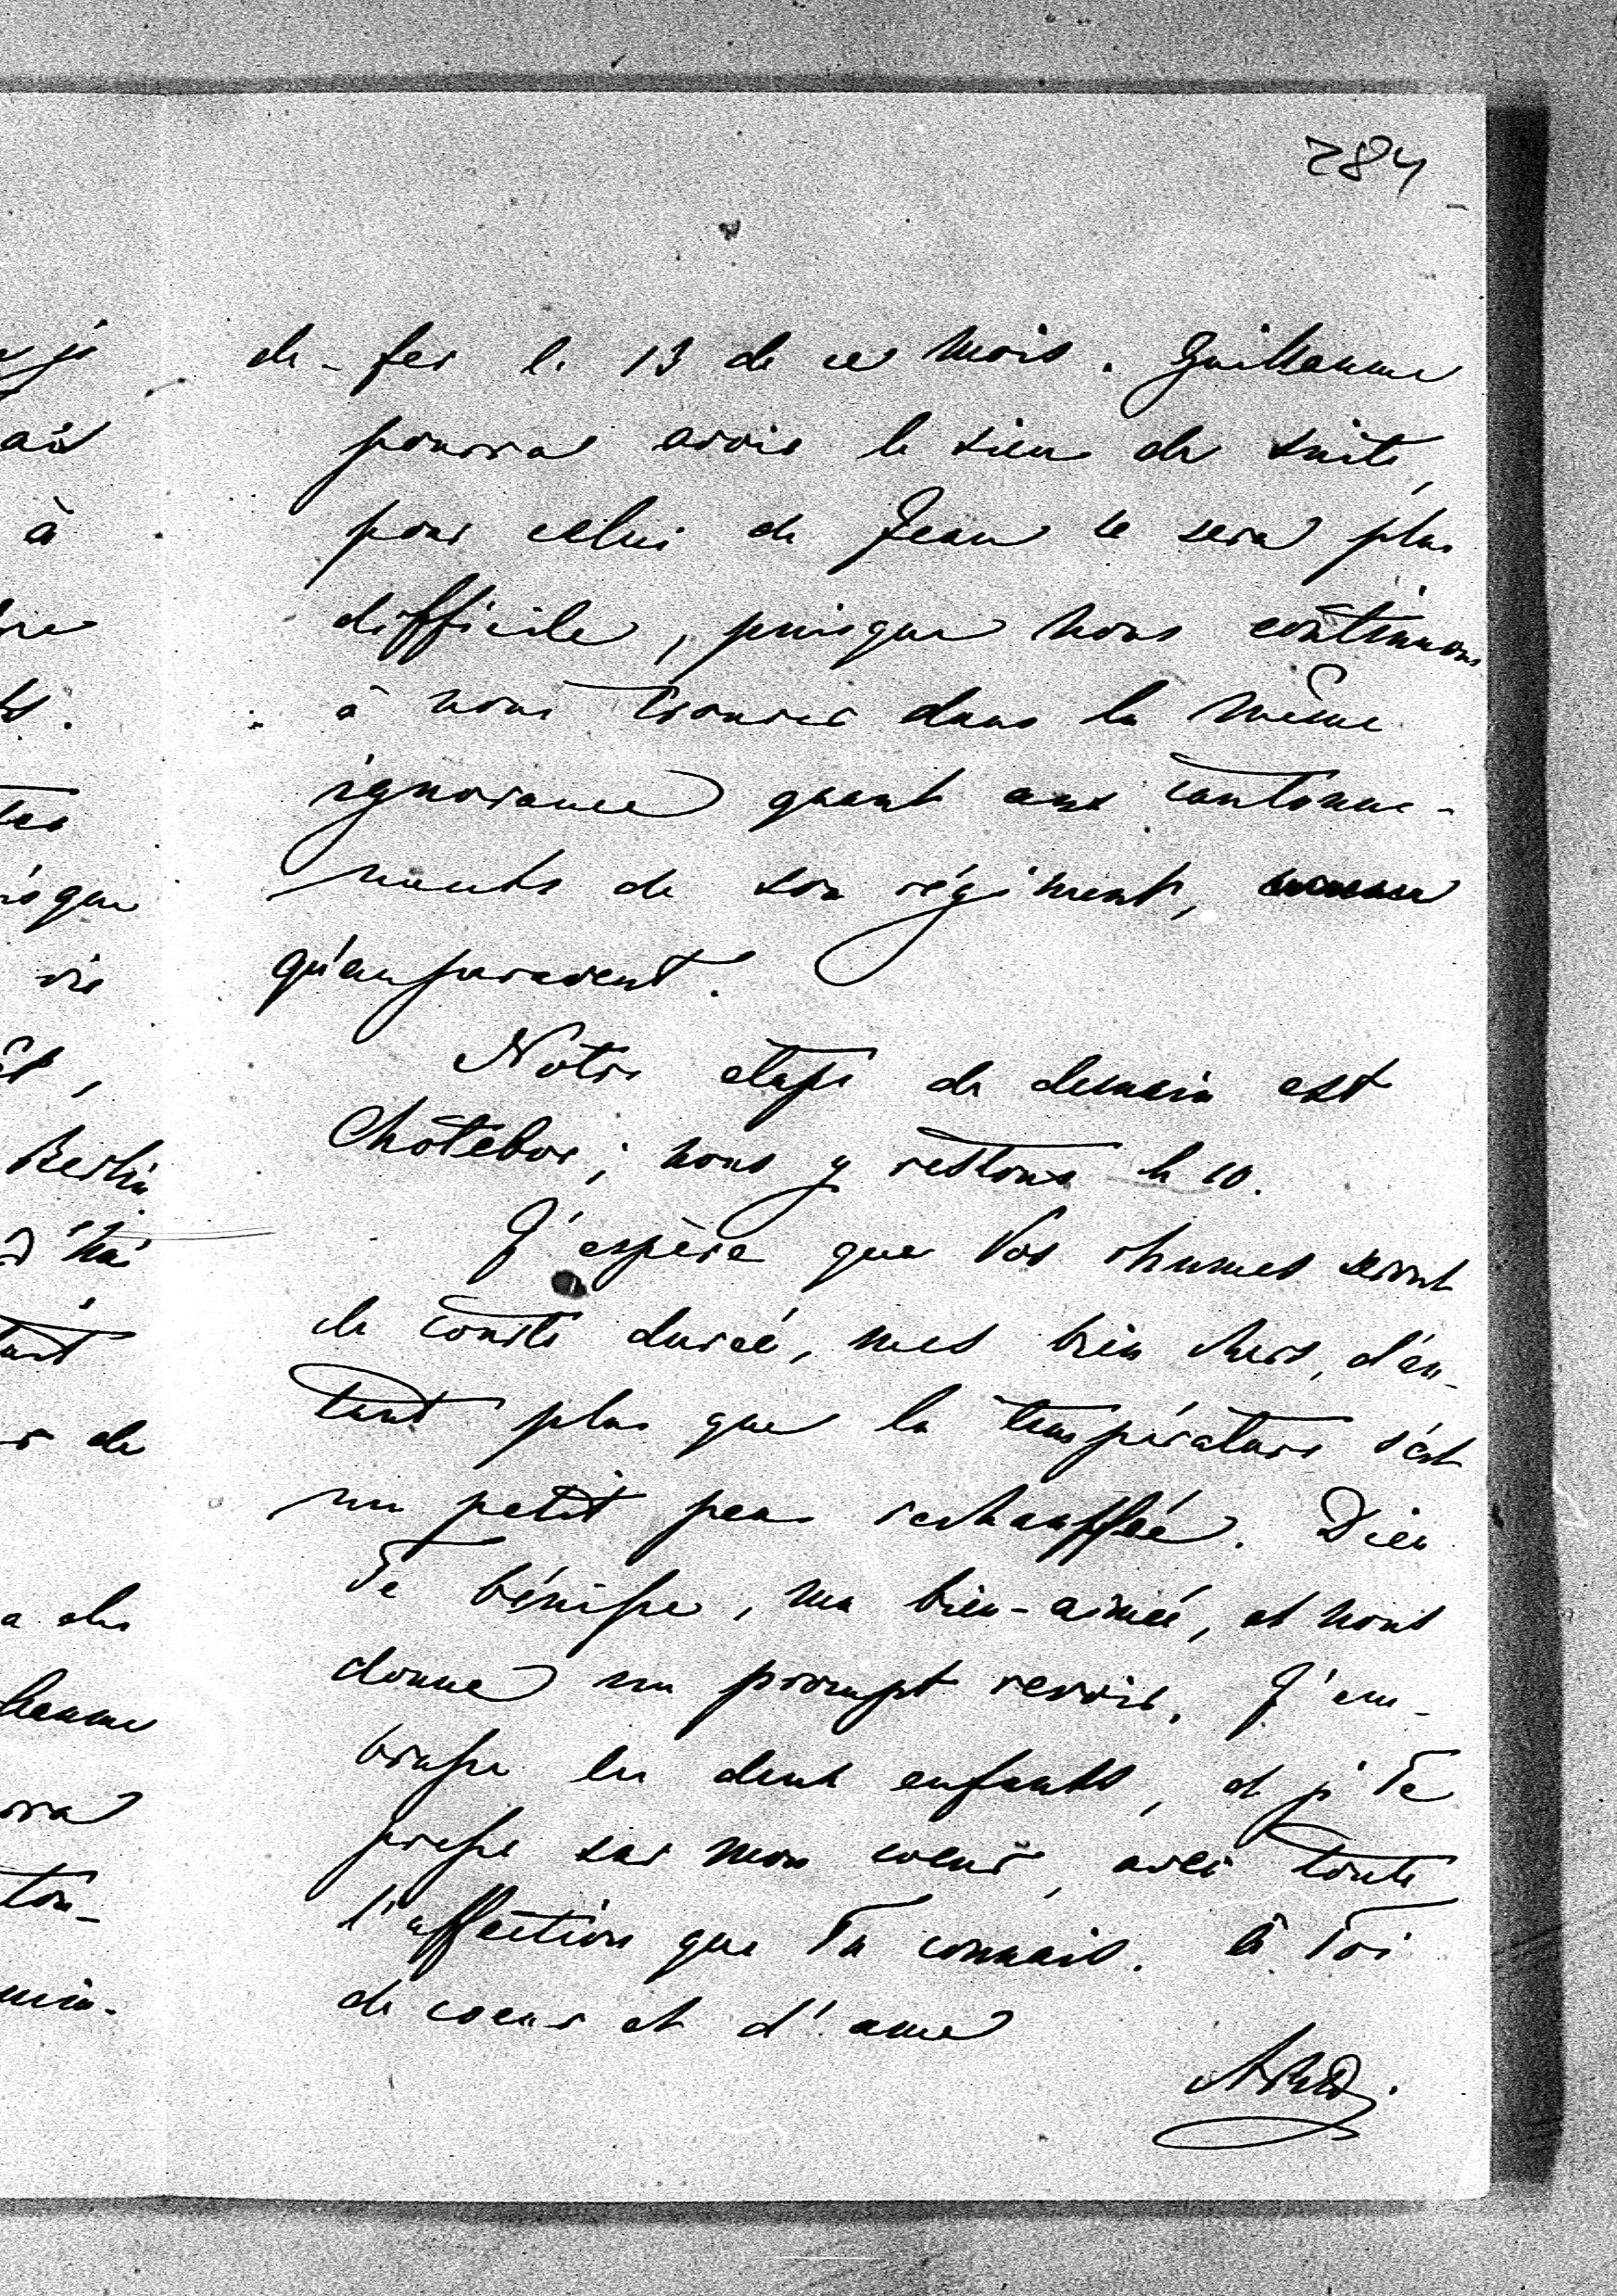 284
de-fer le 13 de ce mois. Guillaume
pourra avoir le sien de suite,
pour celui de Jean ce sera plus
difficile, puisque nous continuons
à nous trouver dans la même
ignorance quant aux cantonne-
ments de son régiment,
qu'auparavent.
Notre étape de demain est
Chotebor; nous y restons le 10.
J'espère que Vos rhumes seront
de courte durée, mes bien chers, d'au-
tant plus que la température s'est
un petit peu rechauffée. Dieu
Te bénisse, ma bien-aimée, et nous
donne un prompt revoir. J'em-
brasse les deux enfants, et je Te
presse sur mon coeur, avec toute
l'affection que Tu connais. à Toi
de coeur et d'ame
je
à
.
isque
vie
Berlin
de